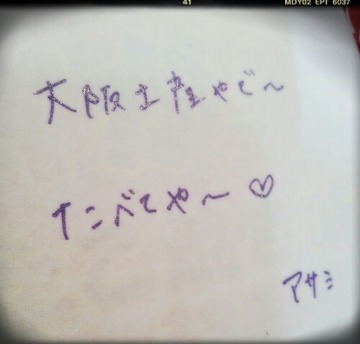 41
MDY02 EPT 6037
大阪土産やで〜
たべてや〜♡
アサミ